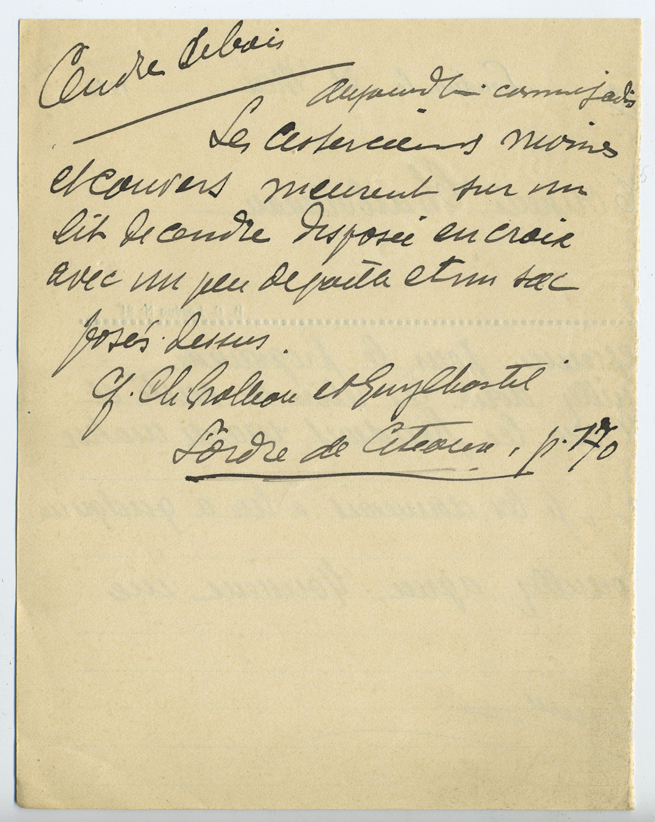 Cendre de bois
Aujourd'hui comme jadis
Les cisterciens moines
et convers meurent sur un
lit de cendre disposée en croix
avec un peu de paille et un sac
posés dessus.
cf. Ch. et Guy
L'ordre de Citeaux, p. 170